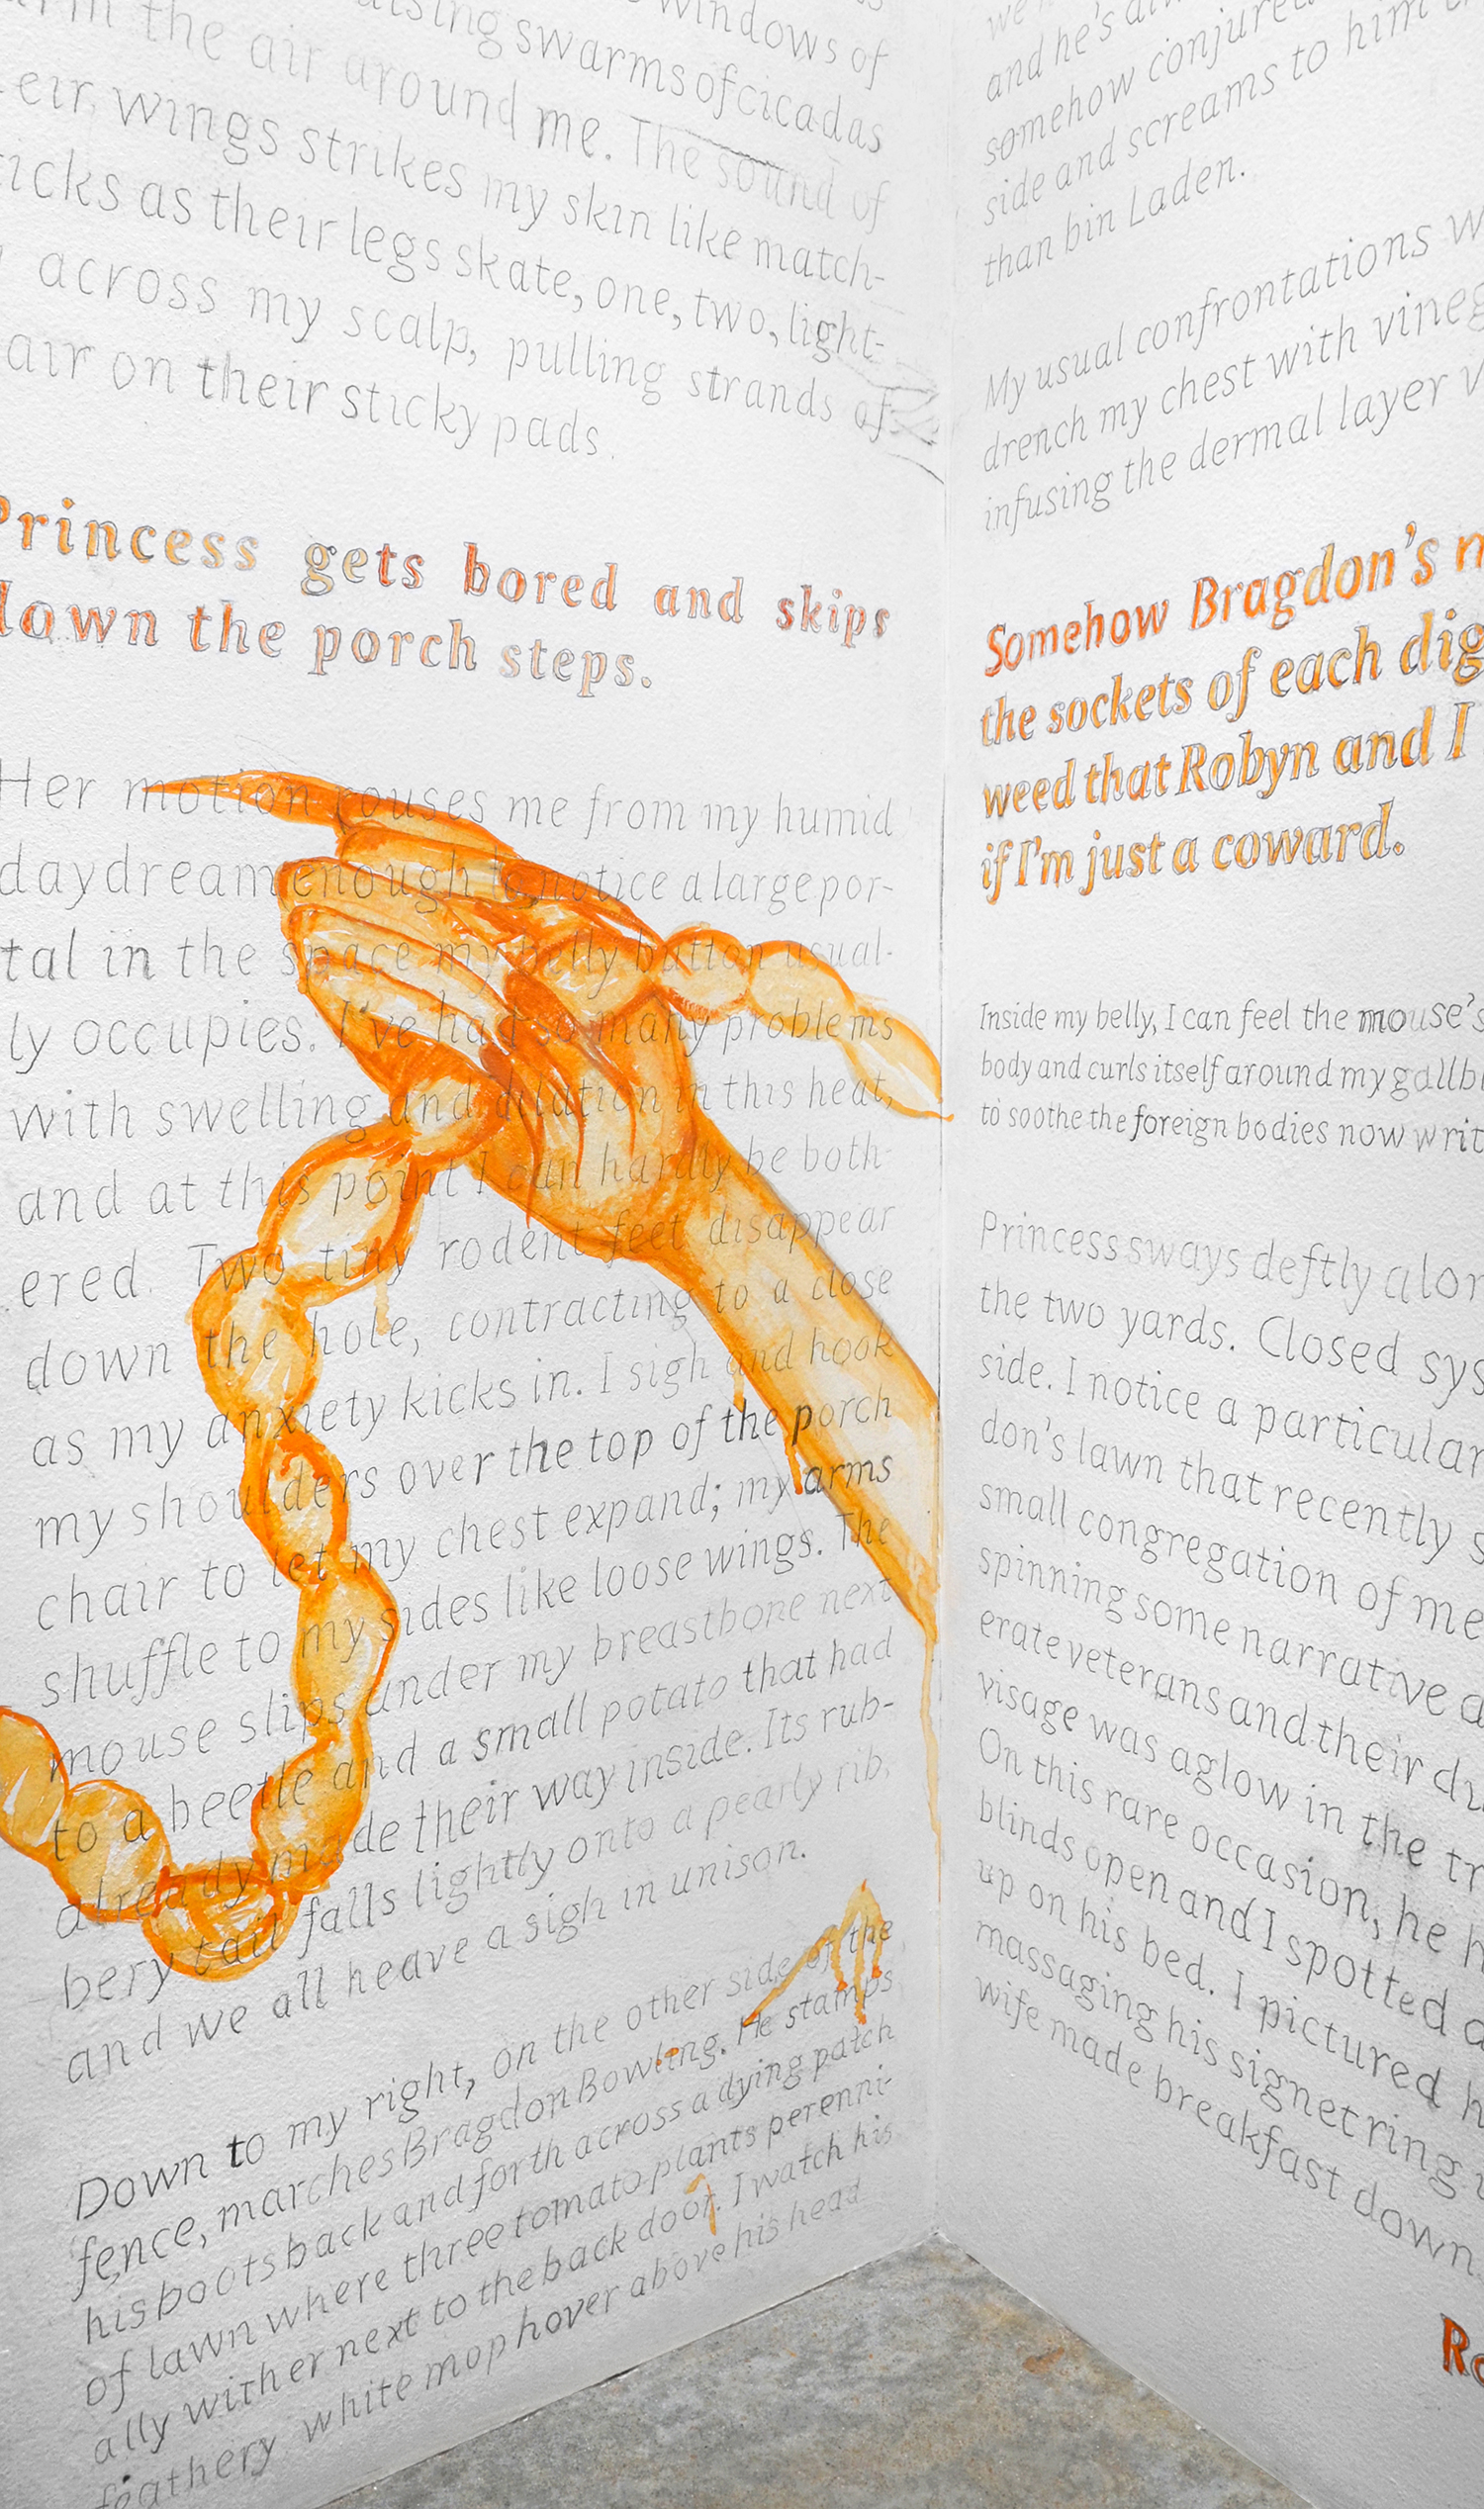 windows of
swarms of cicadas
the air around me. The sound of
wings strikes my skin like match-
as their legs skate, one, two, light-
across my scalp, pulling strands of
on their sticky pads.
Princess gets bored and skips
down the porch steps.
Her motion rouses me from my humid
daydream enough to notice a large por-
tal in the space my belly button usual-
ly occupies. I've had so many problems
with swelling and dilation in this heat,
and at this point I can hardly be both-
ered. Two tiny rodent feet disappear
down the hole, contracting to a close
as my anxiety kicks in. I sigh and hook
my shoulders over the top of the porch
chair to let my chest expand; my arms
shuffle to my sides like loose wings. The
mouse slips under my breastbone next
to a beetle and a small potato that had
already made their way inside. Its rub-
bery tail falls lightly onto a pearly rib,
and we all heave a sigh in unison.
Down to my right, on the other side of the
fence, marches Bragdon Bowling. He stamps
his boots back and forth across a dying patch
of lawn where three tomato plants perenni-
ally wither next to the back door. I watch his
feathery white mop hover above his head
and he's
somehow
side and screams to him
than bin Laden.
My usual confrontations
drench my chest with
infusing the dermal layer
Somehow Bragdon's
the sockets of each
weed that Robyn and I
if I'm just a coward.
Inside my belly, I can feel the mouse's
body and curls itself around my
to soothe the foreign bodies now
Princess sways deftly
the two yards. Closed
side. I notice a particular
don's lawn that recently
small congregation of
spinning some narrative
erate veterans and their
visage was aglow in the
On this rare occasion, he
blinds open and I spotted
up on his bed. I pictured
massaging his signet ring
wife made breakfast down